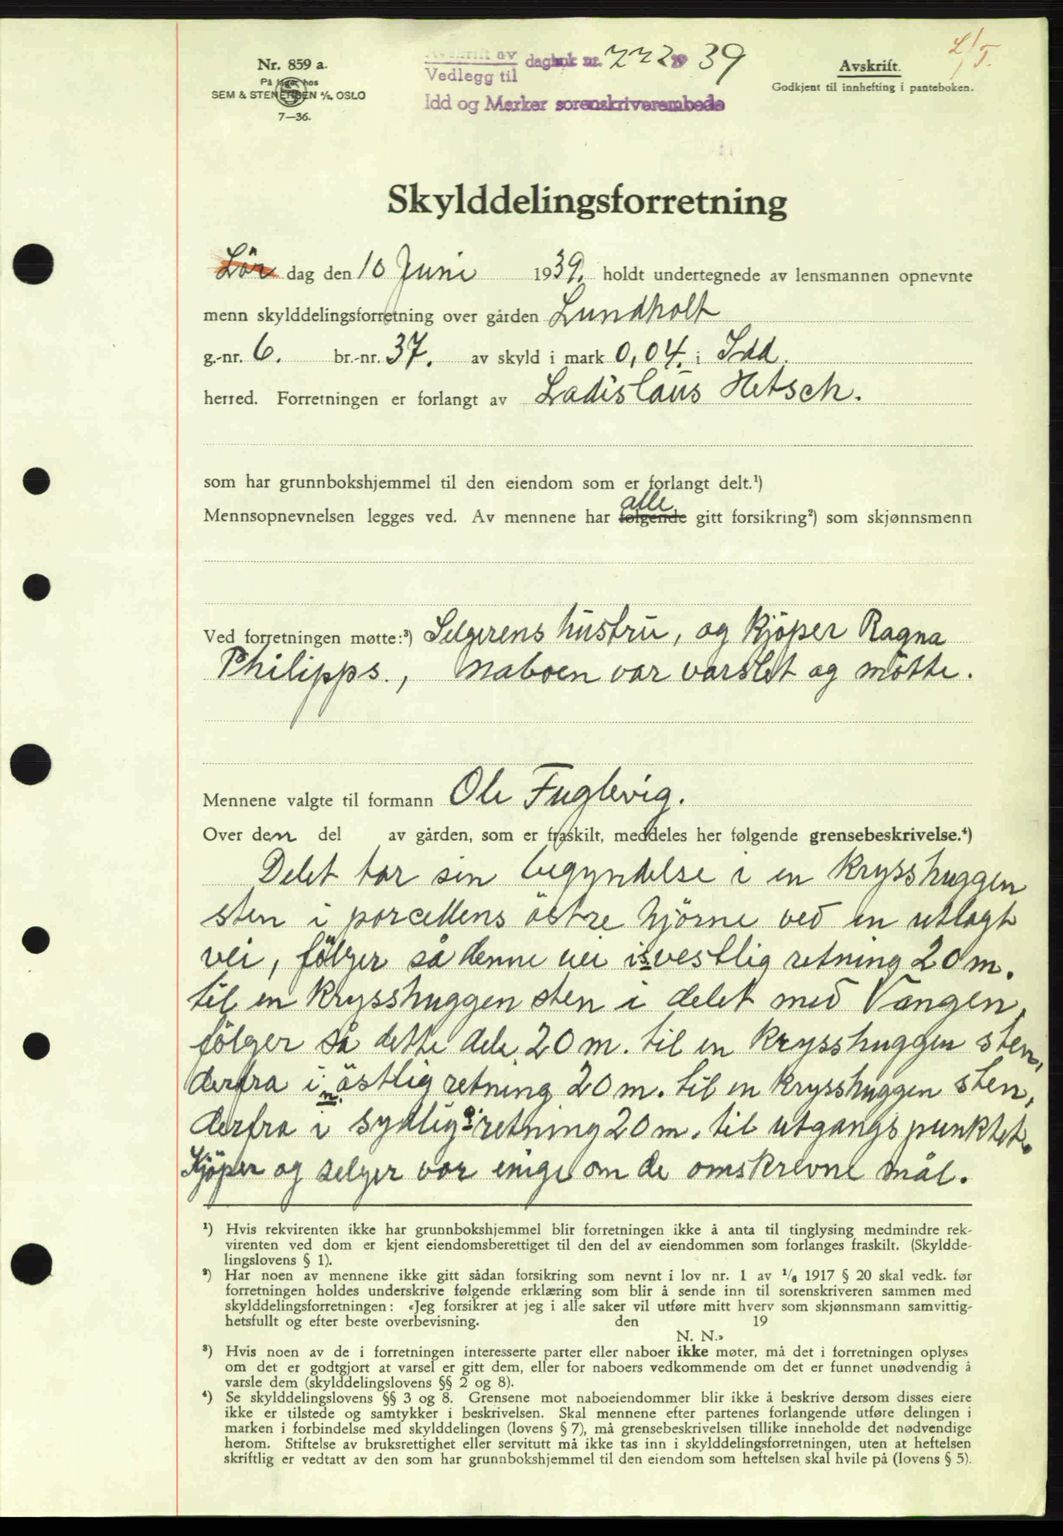 Nr. 859 a.
På lager hos
SEM & STENERSEN A/S, OSLO
7—36.
Avskrift av
Vedlegg til dagbok nr. 772 19 39
Idd og Marker sorenskriverembede
Avskrift.
Godkjent til innhefting i panteboken.
Skylddelingsforretning
Lör dag den 10 Juni 1939. holdt undertegnede av lensmannen opnevnte
menn skylddelingsforretning over gården Lundholt
g.-nr. 6. br.-nr. 37. av skyld i mark 0,04. i Idd.
herred. Forretningen er forlangt av Ladislaus Hetsch.
som har grunnbokshjemmel til den eiendom som er forlangt delt.¹)
alle
Mennsopnevnelsen legges ved. Av mennene har følgende gitt forsikring²) som skjønnsmenn
Ved forretningen møtte:³) Selgerens hustru, og kjöper Ragna
Philipps., naboen var varslet og mötte.
Mennene valgte til formann Ole Fuglevig.
Over den del av gården, som er fraskilt, meddeles her følgende grensebeskrivelse.⁴)
Delet tar sin begyndelse i en krysshuggen
sten i porcellens östre hjörne ved en utlagt
vei, fölger så denne vei i s. vestlig retning 20 m.
til en krysshuggen sten i delet med Vangen,
fölger så dette dele 20 m. til en krysshuggen sten,
derfra i n. östlig retning 20 m. til en krysshuggen sten,
derfra i sydlig ö. retning 20 m. til utgangspunktet.
Kjöper og selger var enige om de omskrevne mål.
¹) Hvis rekvirenten ikke har grunnbokshjemmel blir forretningen ikke å anta til tinglysing medmindre rek-
virenten ved dom er kjent eiendomsberettiget til den del av eiendommen som forlanges fraskilt. (Skyldde-
lingslovens § 1).
²) Har noen av mennene ikke gitt sådan forsikring som nevnt i lov nr. 1 av 1/6 1917 § 20 skal vedk. før
forretningen holdes underskrive følgende erklæring som blir å sende inn til sorenskriveren sammen med
skylddelingsforretningen: «Jeg forsikrer at jeg i alle saker vil utføre mitt hverv som skjønnsmann samvittig-
hetsfullt og efter beste overbevisning. den 19
N. N.»
³) Hvis noen av de i forretningen interesserte parter eller naboer ikke møter, må det i forretningen oplyses
om det er godtgjort at varsel er gitt dem, eller for naboers vedkommende om det er funnet unødvendig å
varsle dem (skylddelingslovens §§ 2 og 8).
⁴) Se skylddelingslovens §§ 3 og 8. Grensene mot naboeiendommer blir ikke å beskrive dersom disses eiere
ikke er tilstede og samtykker i beskrivelsen. Skal mennene efter partenes forlangende utføre delingen i
marken i forbindelse med skylddelingen (lovens § 7), må grensebeskrivelsen tillike inneholde det nødvendige
herom. Stiftelse av bruksrettighet eller servitutt må ikke tas inn i skylddelingsforretningen, uten at heftelsen
skriftlig er vedtatt av den som har grunnbokshjemmel til den eiendom som heftelsen skal hvile på (lovens § 5).